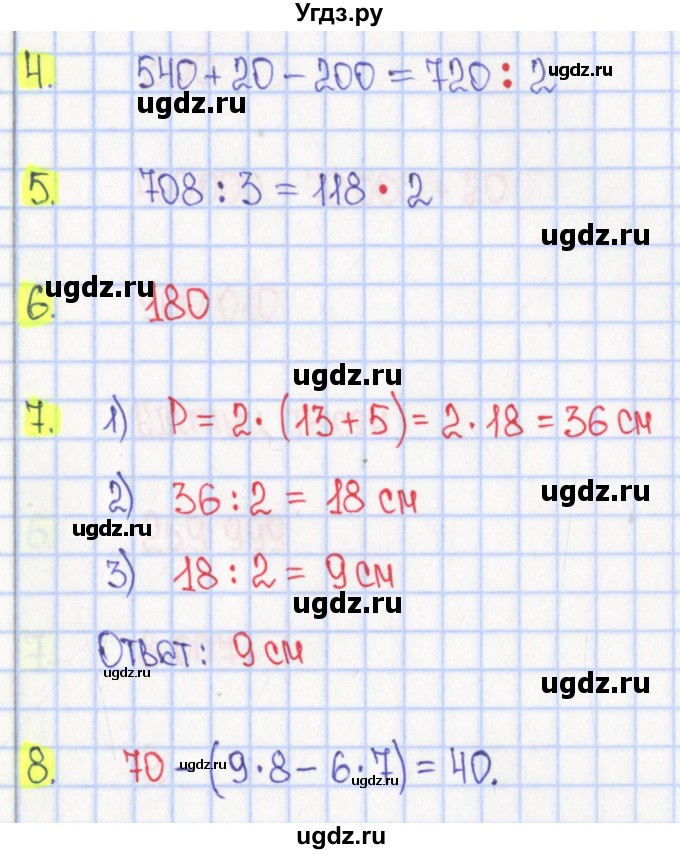 Угдз.ру
4. 540 + 20 - 200 = 720 : 2
ugdz.ru
ugdz.ru
5. 708 : 3 = 118 · 2
ugdz.ru
ugdz.ru
6. 180
ugdz.ru
7. 1) P = 2 · (13 + 5) = 2 · 18 = 36 см
2) 36 : 2 = 18 см
ugdz.ru
ugdz.ru
3) 18 : 2 = 9 см
ugdz.ru
Ответ: 9 см
ugdz.ru
ugdz.ru
8. 70 - (9 · 8 - 6 · 7) = 40.
ugdz.ru
ugdz.ru
ugdz.ru